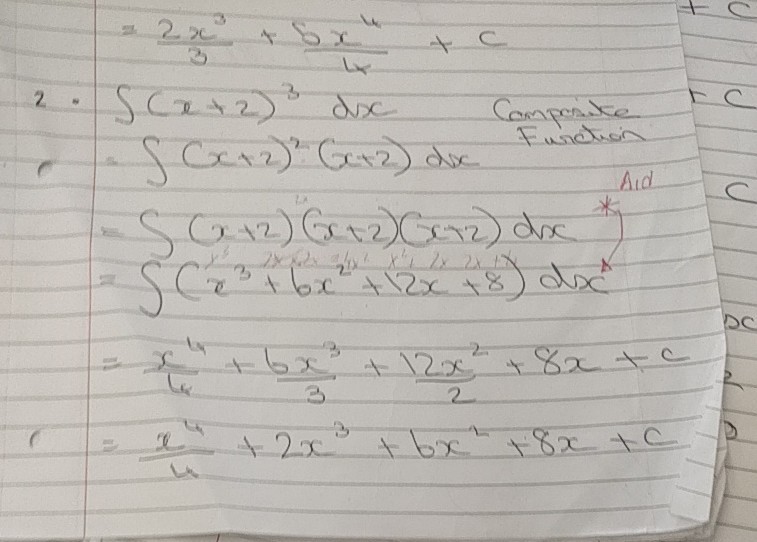 = 2x³/3 + 5x⁴/4 + C
+ C
2. ∫(x+2)³ dx Composite
Function
+ C
= ∫(x+2)²(x+2) dx
Aid
C
= ∫(x+2)(x+2)(x+2) dx *
= ∫(x³ + 6x² + 12x + 8) dx
= x⁴/4 + 6x³/3 + 12x²/2 + 8x + c
= x⁴/4 + 2x³ + 6x² + 8x + c